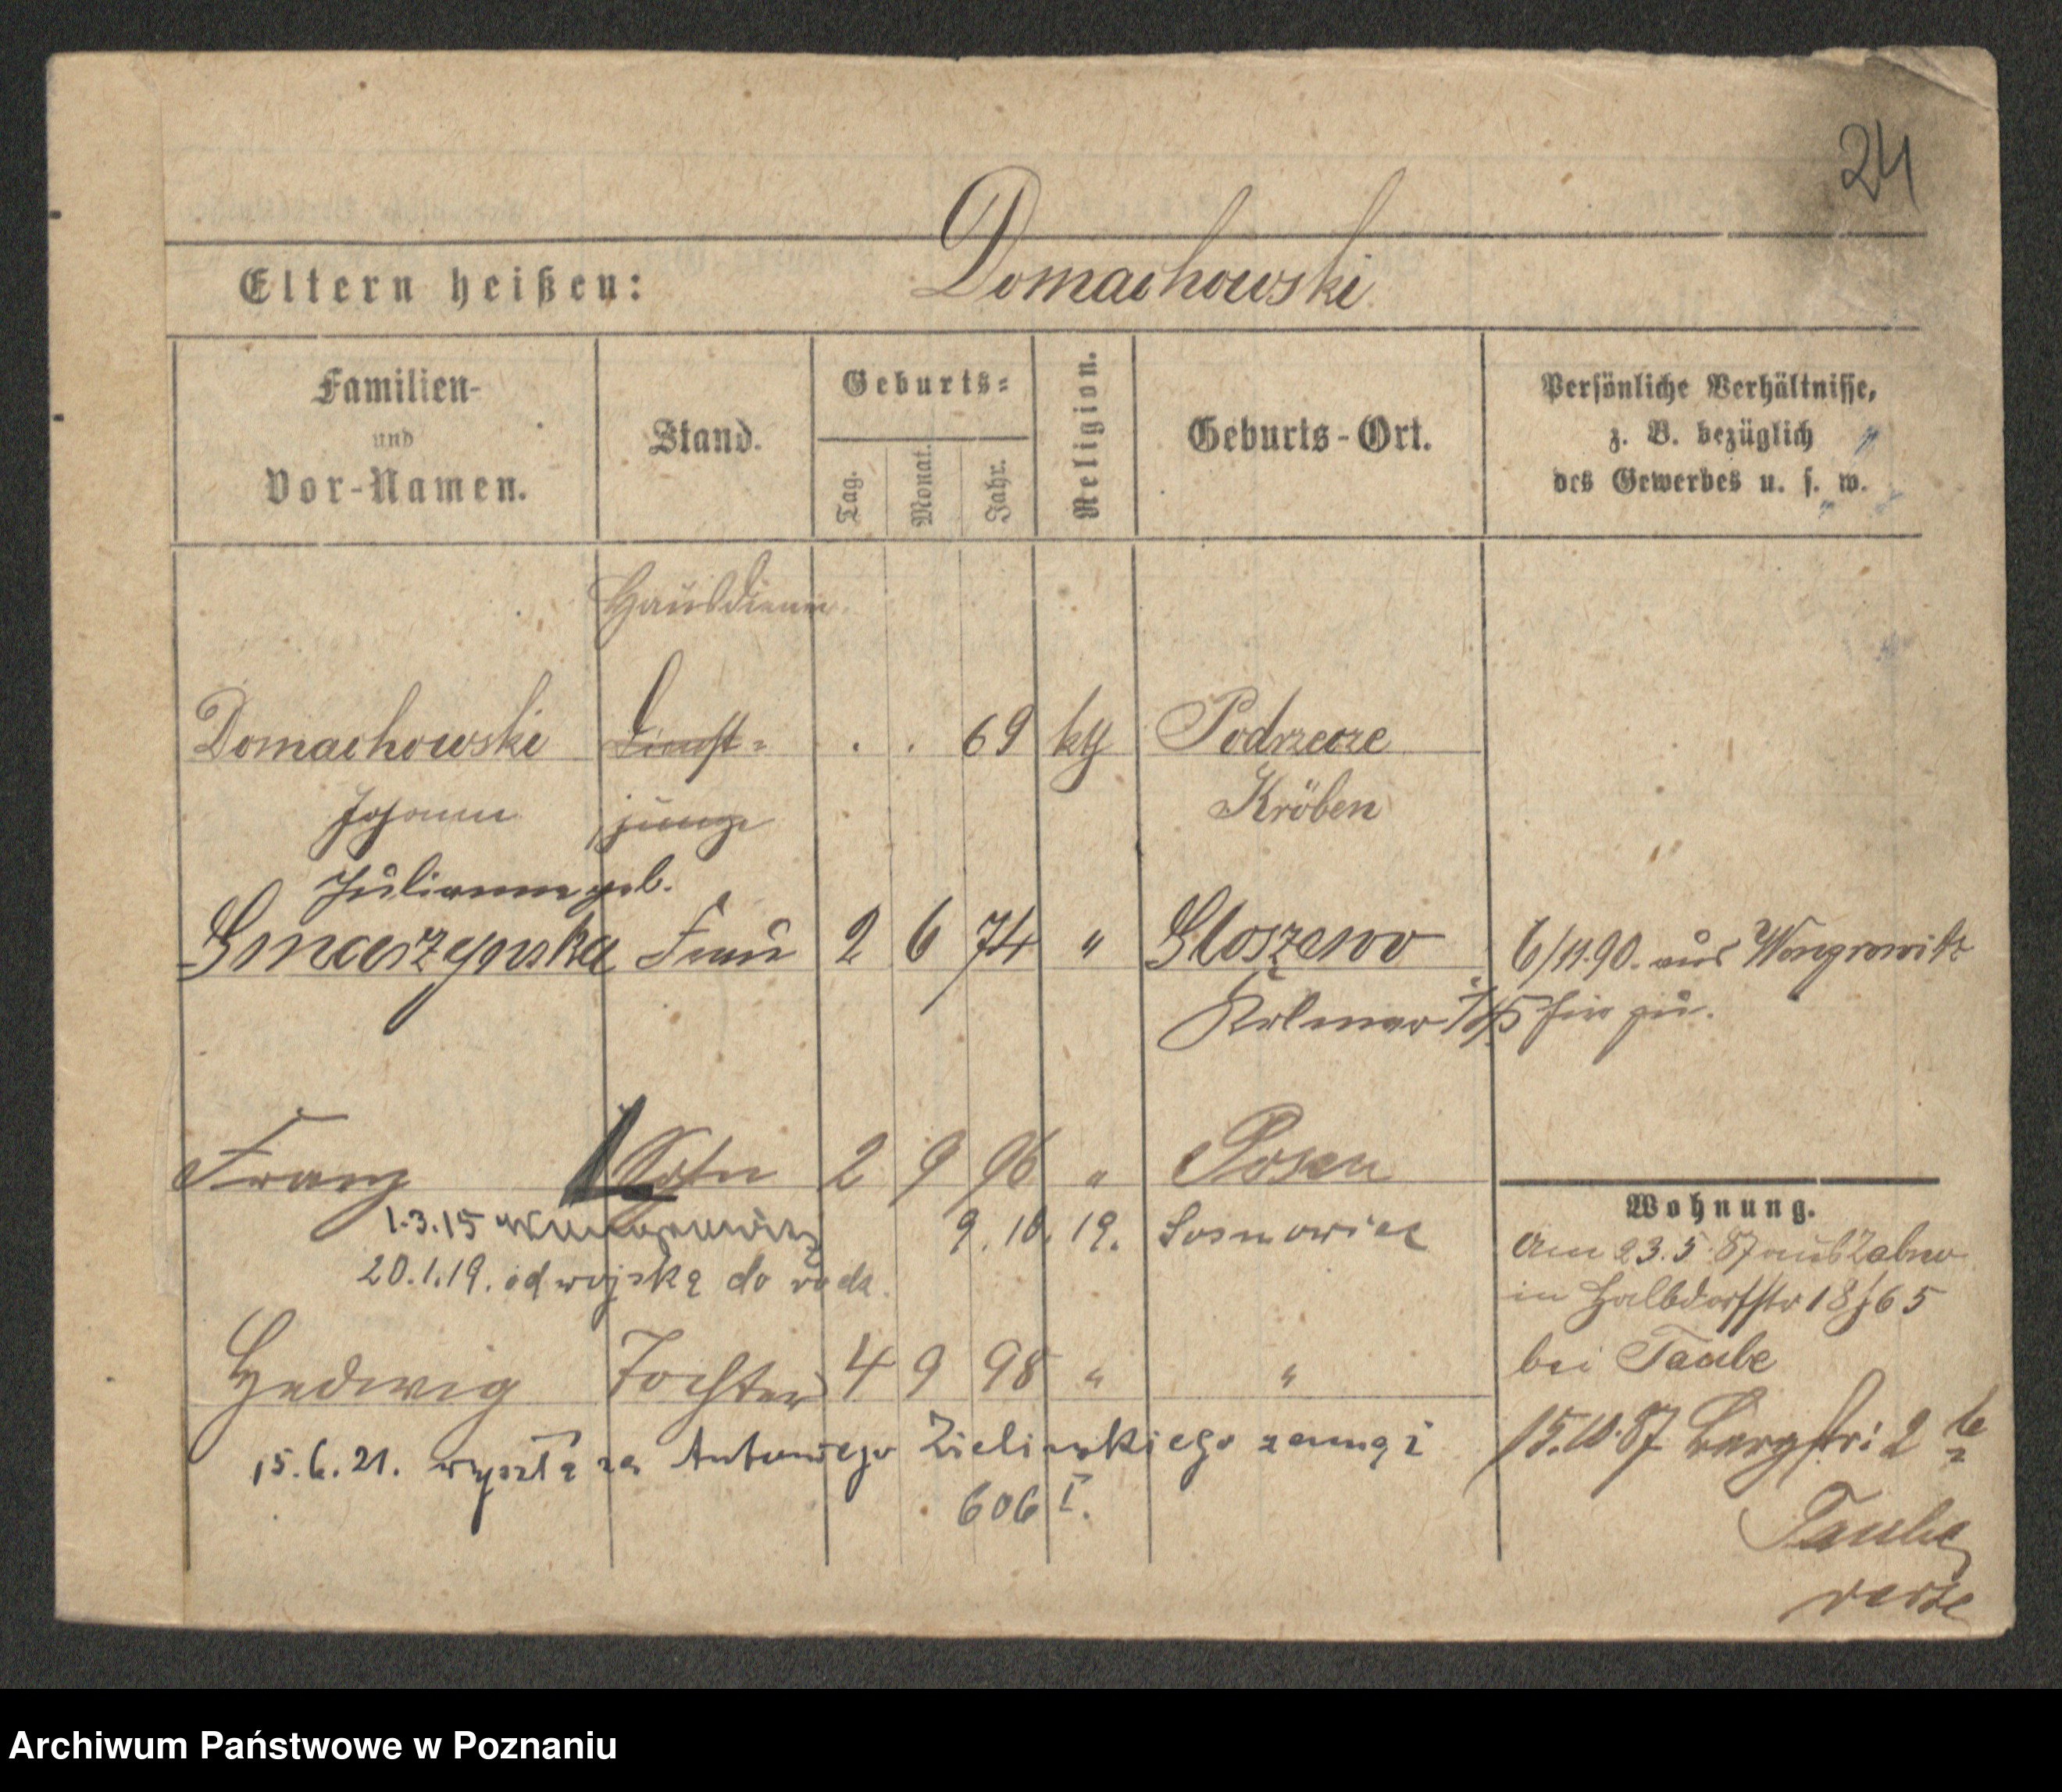 24
Eltern heißen: Domachowski
Familien- und Vor-Namen. Stand. Geburts- Tag. Monat. Jahr. Religion. Geburts-Ort. Persönliche Verhältnisse, z. B. bezüglich des Gewerbes u. s. w.
Hausdiener
Domachowski Dienst- . . 69 kth Podrzecze
Johann junge Kröben
Julianna geb.
Frau 2 6 74 " 6/11.90. aus Wongrowitz
Kolmar i/P hier zu.
Franz Sohn 2 9 96 " Posen
Wohnung.
1.3.15 9.10.19. Sosnowiec
Am 23.5.87 aus Zabno
20.1.19. od wojska do rodz.
in Halbdorfstr 18/65
Hedwig Tochter 4 9 98 " "
bei Taube
15.6.21. wyszła za Antoniego Zielinskiego zamąż
15.10.87 Bergstr: 2
606 I.
Taube
verte
Archiwum Państwowe w Poznaniu